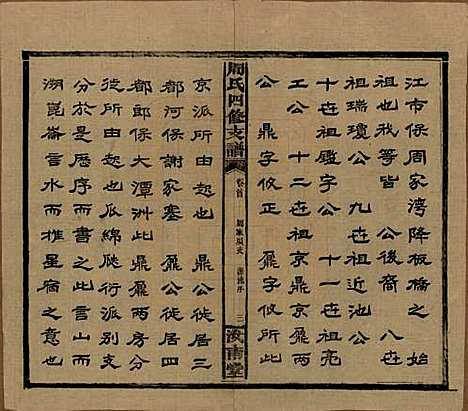 江市保周家湾降板橋之　始
祖也我等皆　公後裔　八世
祖瑞瓊公　九世祖近池公
十世祖鑑字公　十一世祖亮
工公　十二世祖京鼎䴡兩
公　鼎字攸正　䴡字攸所此
周氏四修支譜
卷首
三
汝南堂
京派所由起也　鼎公徙居三
都河保謝家塞　䴡公徙居四
都郎保大潭洲此鼎䴡两房分
徙所由起也瓜綿瓞衍派别支
分於是歷序而書之此言山而
湖崑崙言水而推星宿之意也